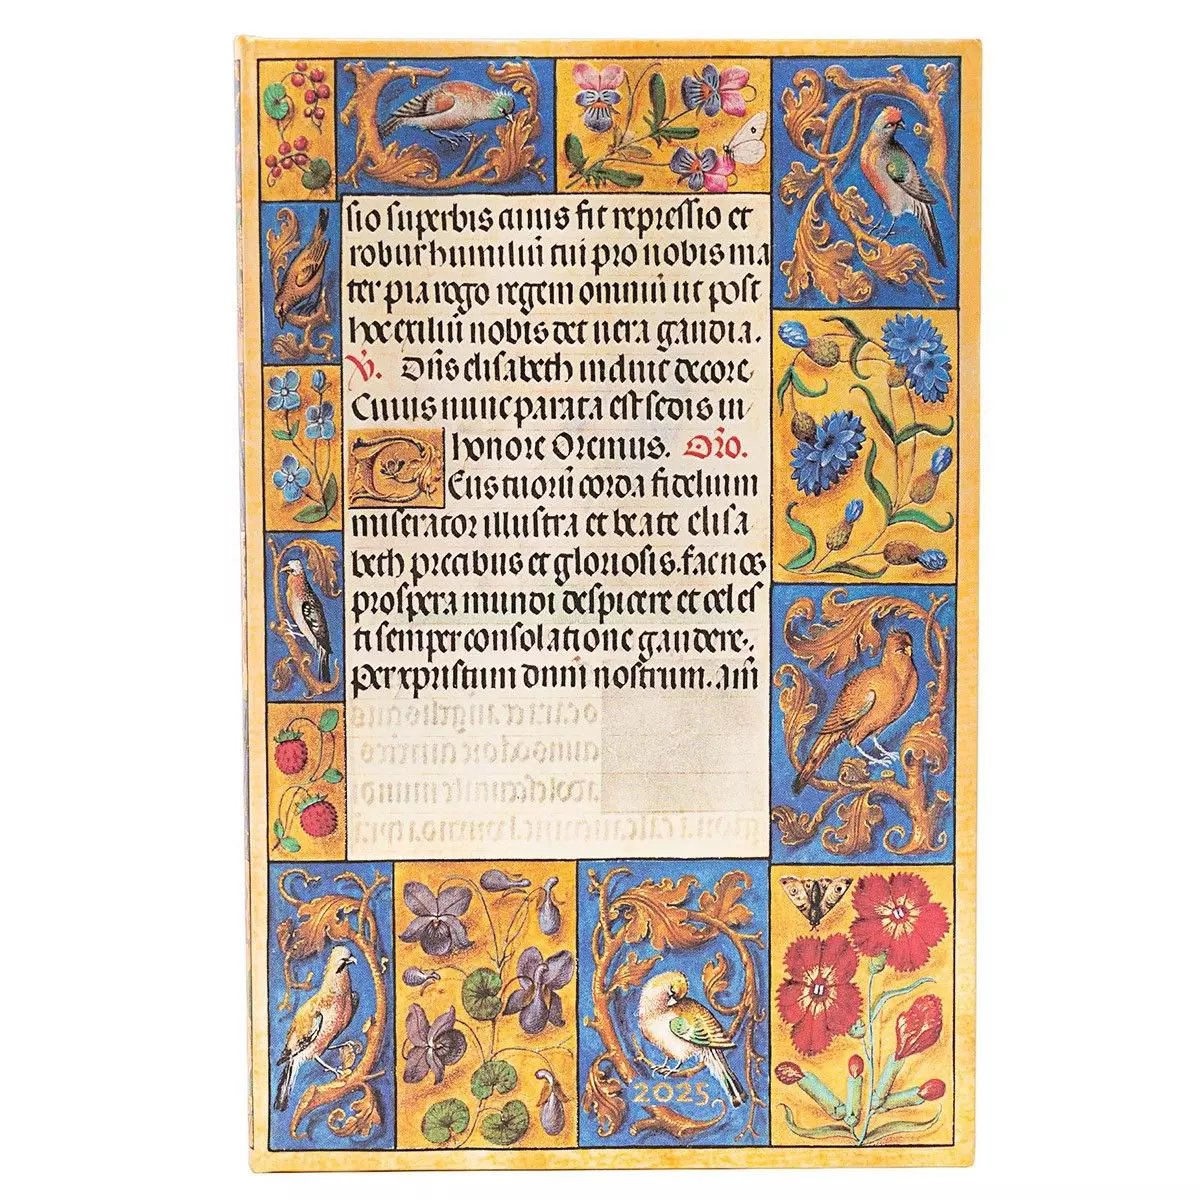 sio superbis cuius fit repressio et
robur humiliū tui pro nobis ma
ter pia rogo regem omniū ut post
hoc exiliū nobis det uera gaudia.
V. Diīs elisabeth induit decore
Cuius nunc parata est sedis in
honore Oremus. Oro.
Deus tuorū corda fidelium
miserator illustra et beate elisa
beth precibus et gloriosis. fac nos
prospera mundi despicere et celes
ti semper consolatione gaudere.
Per xpristum dnm nostrum. Am
2025